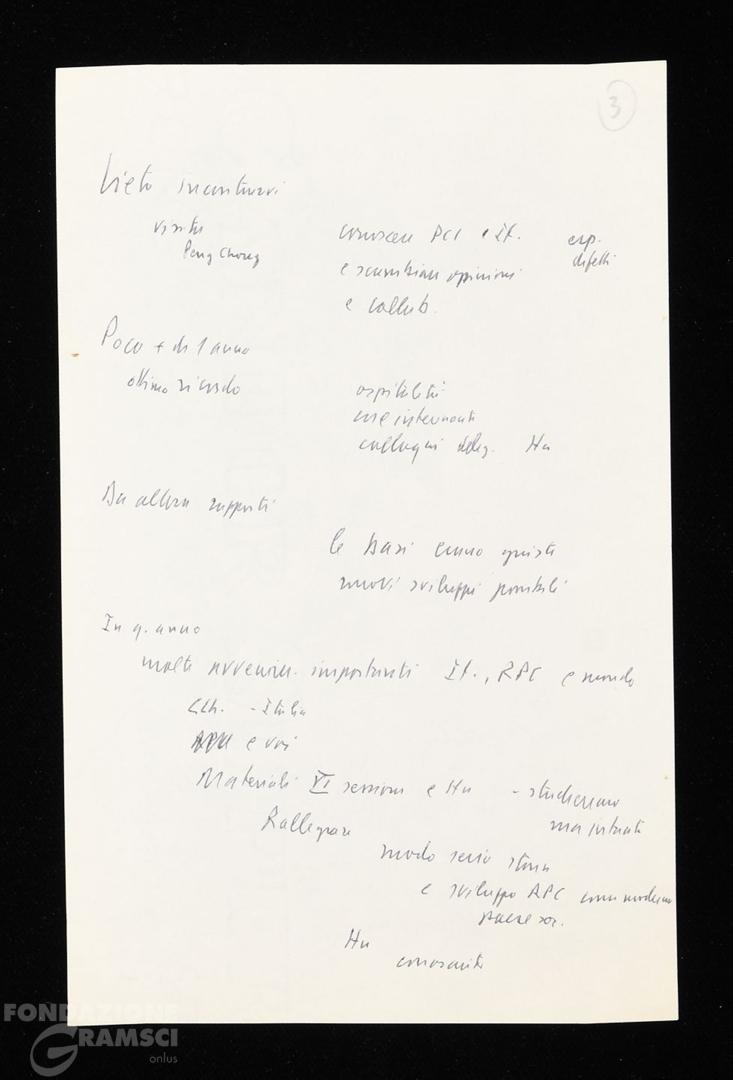 3
Lieto incontrarvi
visita
Peng Chong
conoscere PCI e It.
esp.
difetti
e scambiare opinioni
e collab.
Poco + di 1 anno
ottimo ricordo
ospitalità
cose interessanti
colloqui deleg. Hu
Da allora rapporti
le basi erano giuste
nuovi sviluppi possibili
In q. anno
molti avvenim. importanti It., RPC e mondo
- Italia
e voi
Materiali VI sessione e Hu - studieremo
ma intanto
Rallegrare
modo serio storia
e sviluppo RPC come moderno
paese soc.
Hu
conosciuto
FONDAZIONE
GRAMSCI
onlus